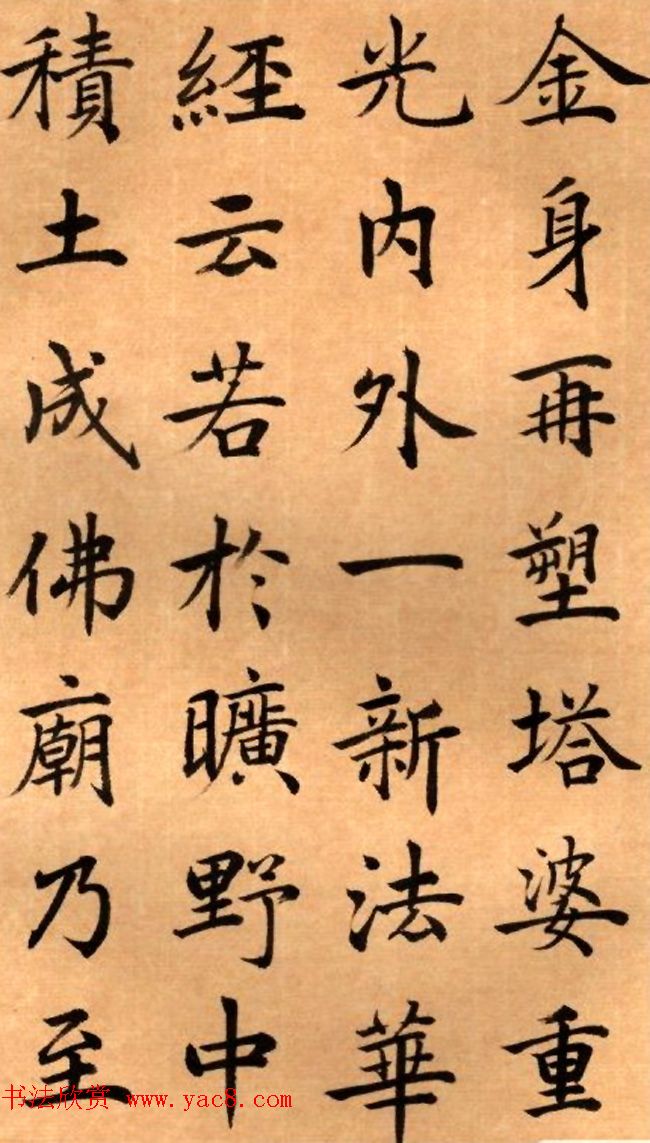 金身再塑塔婆重
光内外一新法華
經云若於曠野中
積土成佛廟乃至
书法欣赏 www.yac8.com